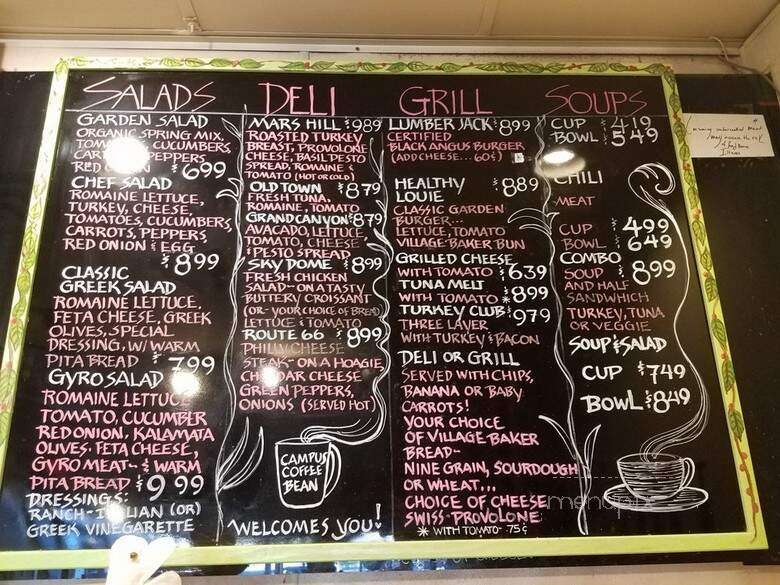 SALADS
GARDEN SALAD
ORGANIC SPRING MIX,
CUCUMBERS
PEPPERS
RED $6.99
CHEF SALAD
ROMAINE LETTUCE,
TURKEY, CHEESE,
TOMATOES, CUCUMBERS
CARROTS, PEPPERS,
RED ONION & EGG
$8.99
CLASSIC
GREEK SALAD
ROMAINE LETTUCE,
FETA CHEESE, GREEK
OLIVES, SPECIAL
DRESSING, W/ WARM
PITA BREAD $7.99
GYRO SALAD
ROMAINE LETTUCE
TOMATO, CUCUMBER
RED ONION, KALAMATA
OLIVES, FETA CHEESE,
GYRO MEAT & WARM
PITA BREAD $9.99
DRESSINGS:
RANCH - ITALIAN (OR)
GREEK VINEGARETTE
DELI
MARS HILL $9.89
ROASTED TURKEY
BREAST, PROVOLONE
CHEESE, BASIL PESTO
SPREAD, ROMAINE &
TOMATO (HOT OR COLD)
OLD TOWN $8.79
FRESH TUNA,
ROMAINE, TOMATO
GRAND CANYON $8.79
AVACADO, LETTUCE
TOMATO, CHEESE
& PESTO SPREAD
SKY DOME $8.99
FRESH CHICKEN
SALAD - ON A TASTY
BUTTERY CROISSANT
(OR - YOUR CHOICE OF BREAD)
LETTUCE & TOMATO
ROUTE 66 $8.99
PHILLY CHEESE
STEAK - ON A HOAGIE
CHEDDAR CHEESE
GREEN PEPPERS,
ONIONS (SERVED HOT)
CAMPUS
COFFEE
BEAN
WELCOMES YOU!
GRILL
LUMBER JACK $8.99
CERTIFIED
BLACK ANGUS BURGER
(ADD CHEESE... 60¢)
HEALTHY $8.89
LOUIE
CLASSIC GARDEN
BURGER...
LETTUCE, TOMATO
VILLAGE BAKER BUN
GRILLED CHEESE
WITH TOMATO * $6.39
TUNA MELT
WITH TOMATO * $8.99
TURKEY CLUB $9.79
THREE LAYER
WITH TURKEY & BACON
DELI OR GRILL
SERVED WITH CHIPS,
BANANA OR BABY
CARROTS!
YOUR CHOICE
OF VILLAGE BAKER
BREAD -
NINE GRAIN, SOURDOUGH
OR WHEAT...
CHOICE OF CHEESE
SWISS - PROVOLONE
* WITH TOMATO - 75¢
SOUPS
CUP $4.19
BOWL $5.49
CHILI
MEAT
CUP $4.99
BOWL $6.49
COMBO
SOUP $8.99
AND HALF
SANDWHICH
TURKEY, TUNA
OR VEGGIE
SOUP & SALAD
CUP $7.49
BOWL $8.49